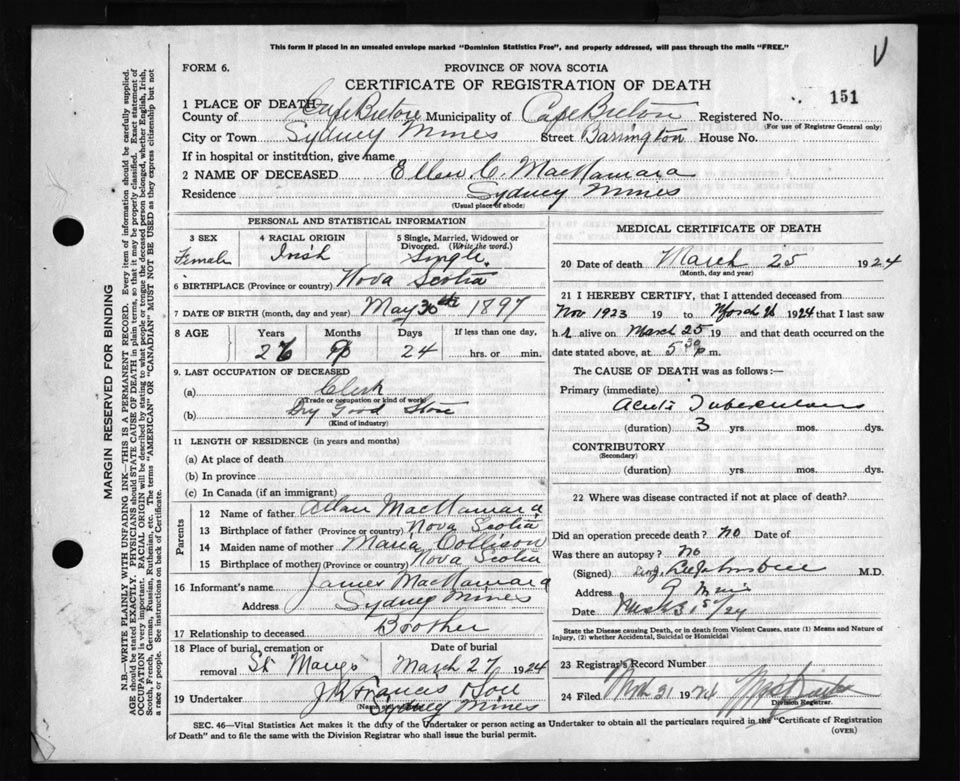 This form if placed in an unsealed envelope marked "Dominion Statistics Free", and properly addressed, will pass through the mails "FREE."
FORM 6.
PROVINCE OF NOVA SCOTIA
CERTIFICATE OF REGISTRATION OF DEATH
151
1 PLACE OF DEATH
County of Cape Breton Municipality of Cape Breton Registered No.
(For use of Registrar General only)
City or Town Sydney Mines Street Barrington House No.
If in hospital or institution, give name
2 NAME OF DECEASED Ellen C. MacNamara
Residence Sydney Mines
(Usual place of abode)
MARGIN RESERVED FOR BINDING
N.B—WRITE PLAINLY WITH UNFADING INK—THIS IS A PERMANENT RECORD. Every item of information should be carefully supplied.
AGE should be stated EXACTLY. PHYSICIANS should STATE CAUSE OF DEATH in plain terms, so that it may be properly classified. Exact statement of
OCCUPATION is very important. RACIAL ORIGIN will be described by stating to what people or tongue the deceased person belonged, whether English, Irish,
Scotch, French, German, Russian, Ruthenian, etc. The terms "AMERICAN" OR "CANADIAN" MUST NOT BE USED as they express citizenship but not
a race or people. See instructions on back of Certificate.
PERSONAL AND STATISTICAL INFORMATION
3 SEX
Female
4 RACIAL ORIGIN
Irish
5 Single, Married, Widowed or
Divorced. (Write the word.)
Single.
6 BIRTHPLACE (Province or country) Nova Scotia
7 DATE OF BIRTH (month, day and year) May 30th 1897
8 AGE Years Months Days If less than one day,
26 24 hrs. or min.
9. LAST OCCUPATION OF DECEASED
(a) Clerk
(Trade or occupation or kind of work)
(b) Dry Good Store
(Kind of industry)
11 LENGTH OF RESIDENCE (in years and months)
(a) At place of death
(b) In province
(c) In Canada (if an immigrant)
Parents
12 Name of father Allan MacNamara
13 Birthplace of father (Province or country) Nova Scotia
14 Maiden name of mother Maria Collison
15 Birthplace of mother (Province or country) Nova Scotia
16 Informant's name James MacNamara
Address Sydney Mines
17 Relationship to deceased Brother
18 Place of burial, cremation or
removal St Marys
Date of burial
March 27 1924
19 Undertaker J R Francis
Sydney Mines
MEDICAL CERTIFICATE OF DEATH
20 Date of death March 25 1924
(Month, day and year)
21 I HEREBY CERTIFY, that I attended deceased from
Nov 1923 19 to March 1924 that I last saw
h r alive on March 25 19 and that death occurred on
date stated above, at 5 30 p m.
The CAUSE OF DEATH was as follows:—
Primary (immediate)
Acute Tuberculosis
(duration) 3 yrs. mos. dys.
CONTRIBUTORY
(Secondary)
(duration) yrs. mos. dys.
22 Where was disease contracted if not at place of death?
Did an operation precede death? No Date of
Was there an autopsy? No
(Signed) M.D.
Address
Date March 31st/24
State the Disease causing Death, or in death from Violent Causes, state (1) Means and Nature of
Injury, (2) whether Accidental, Suicidal or Homicidal
23 Registrar's Record Number
24 Filed 31 1924
Division Registrar.
SEC. 46—Vital Statistics Act makes it the duty of the Undertaker or person acting as Undertaker to obtain all the particulars required in the "Certificate of Registration
of Death" and to file the same with the Division Registrar who shall issue the burial permit.
(OVER)